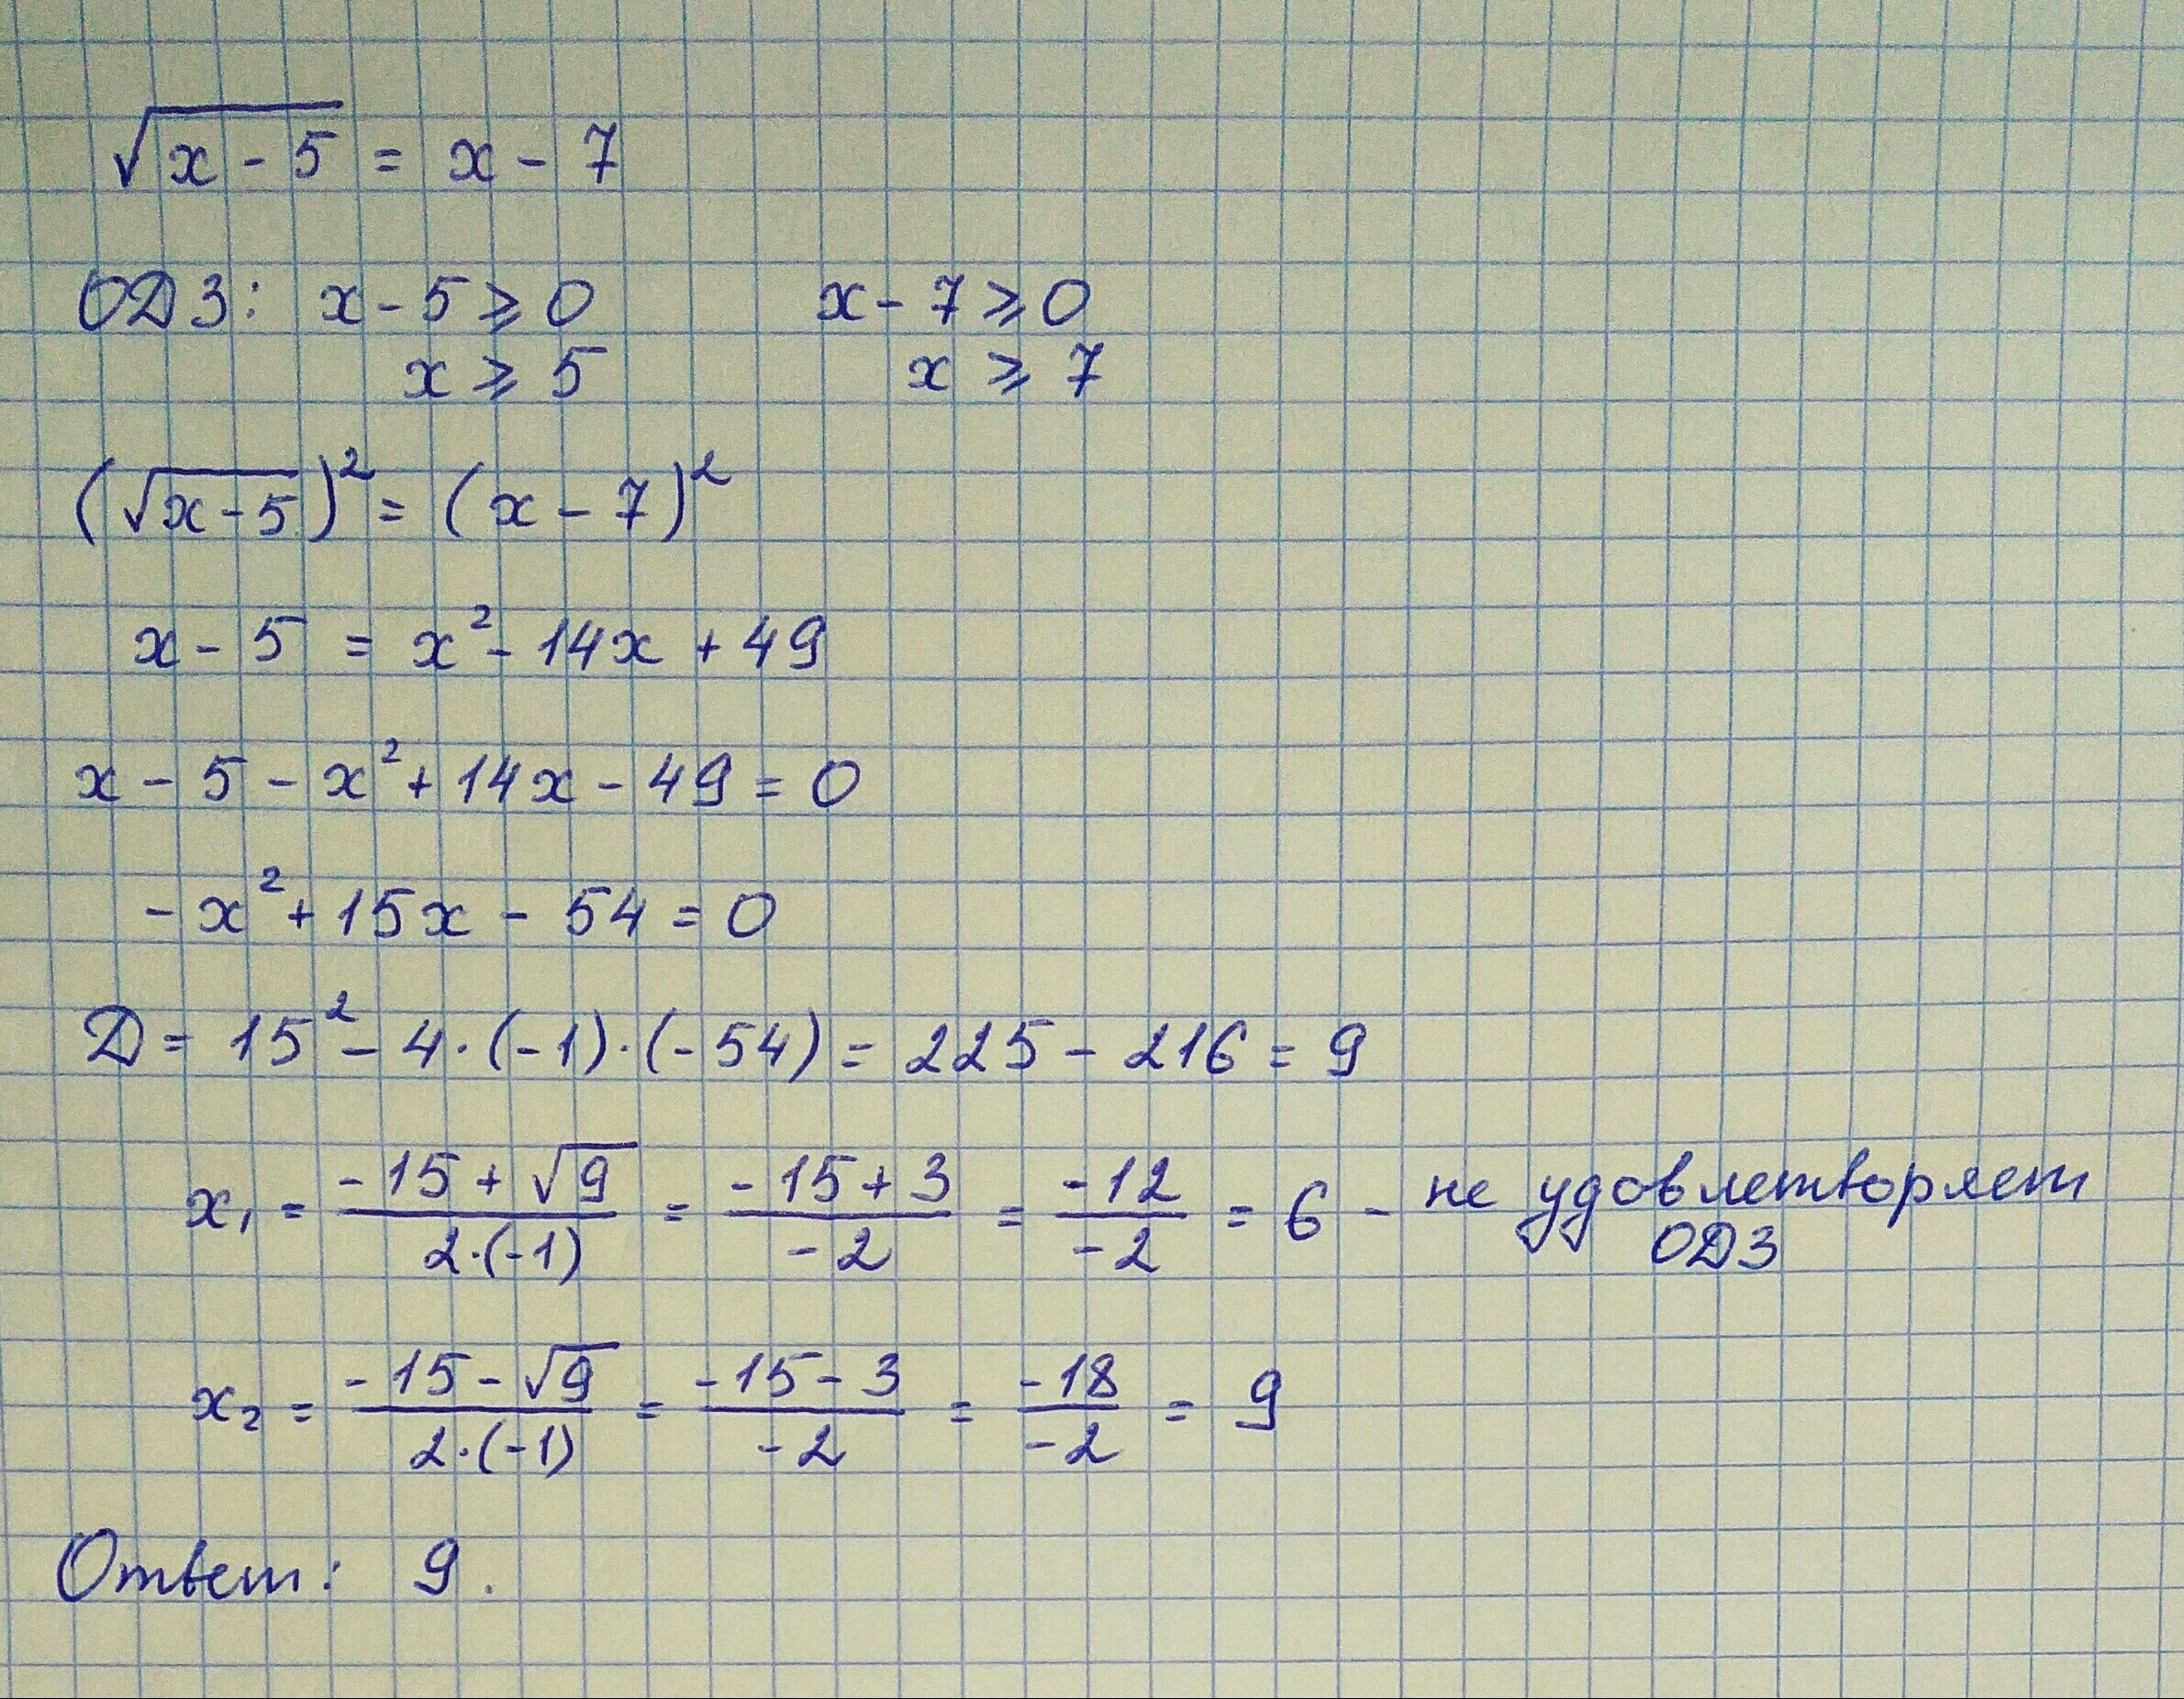 √(x - 5) = x - 7
ОДЗ: x - 5 ⩾ 0 x - 7 ⩾ 0
x ⩾ 5 x ⩾ 7
(√(x - 5))² = (x - 7)²
x - 5 = x² - 14x + 49
x - 5 - x² + 14x - 49 = 0
- x² + 15x - 54 = 0
Д = 15² - 4·(-1)·(-54) = 225 - 216 = 9
x₁ = (-15 + √9)/(2·(-1)) = (-15 + 3)/(-2) = (-12)/(-2) = 6 - не удовлетворяет
ОДЗ
x₂ = (-15 - √9)/(2·(-1)) = (-15 - 3)/(-2) = (-18)/(-2) = 9
Ответ: 9.